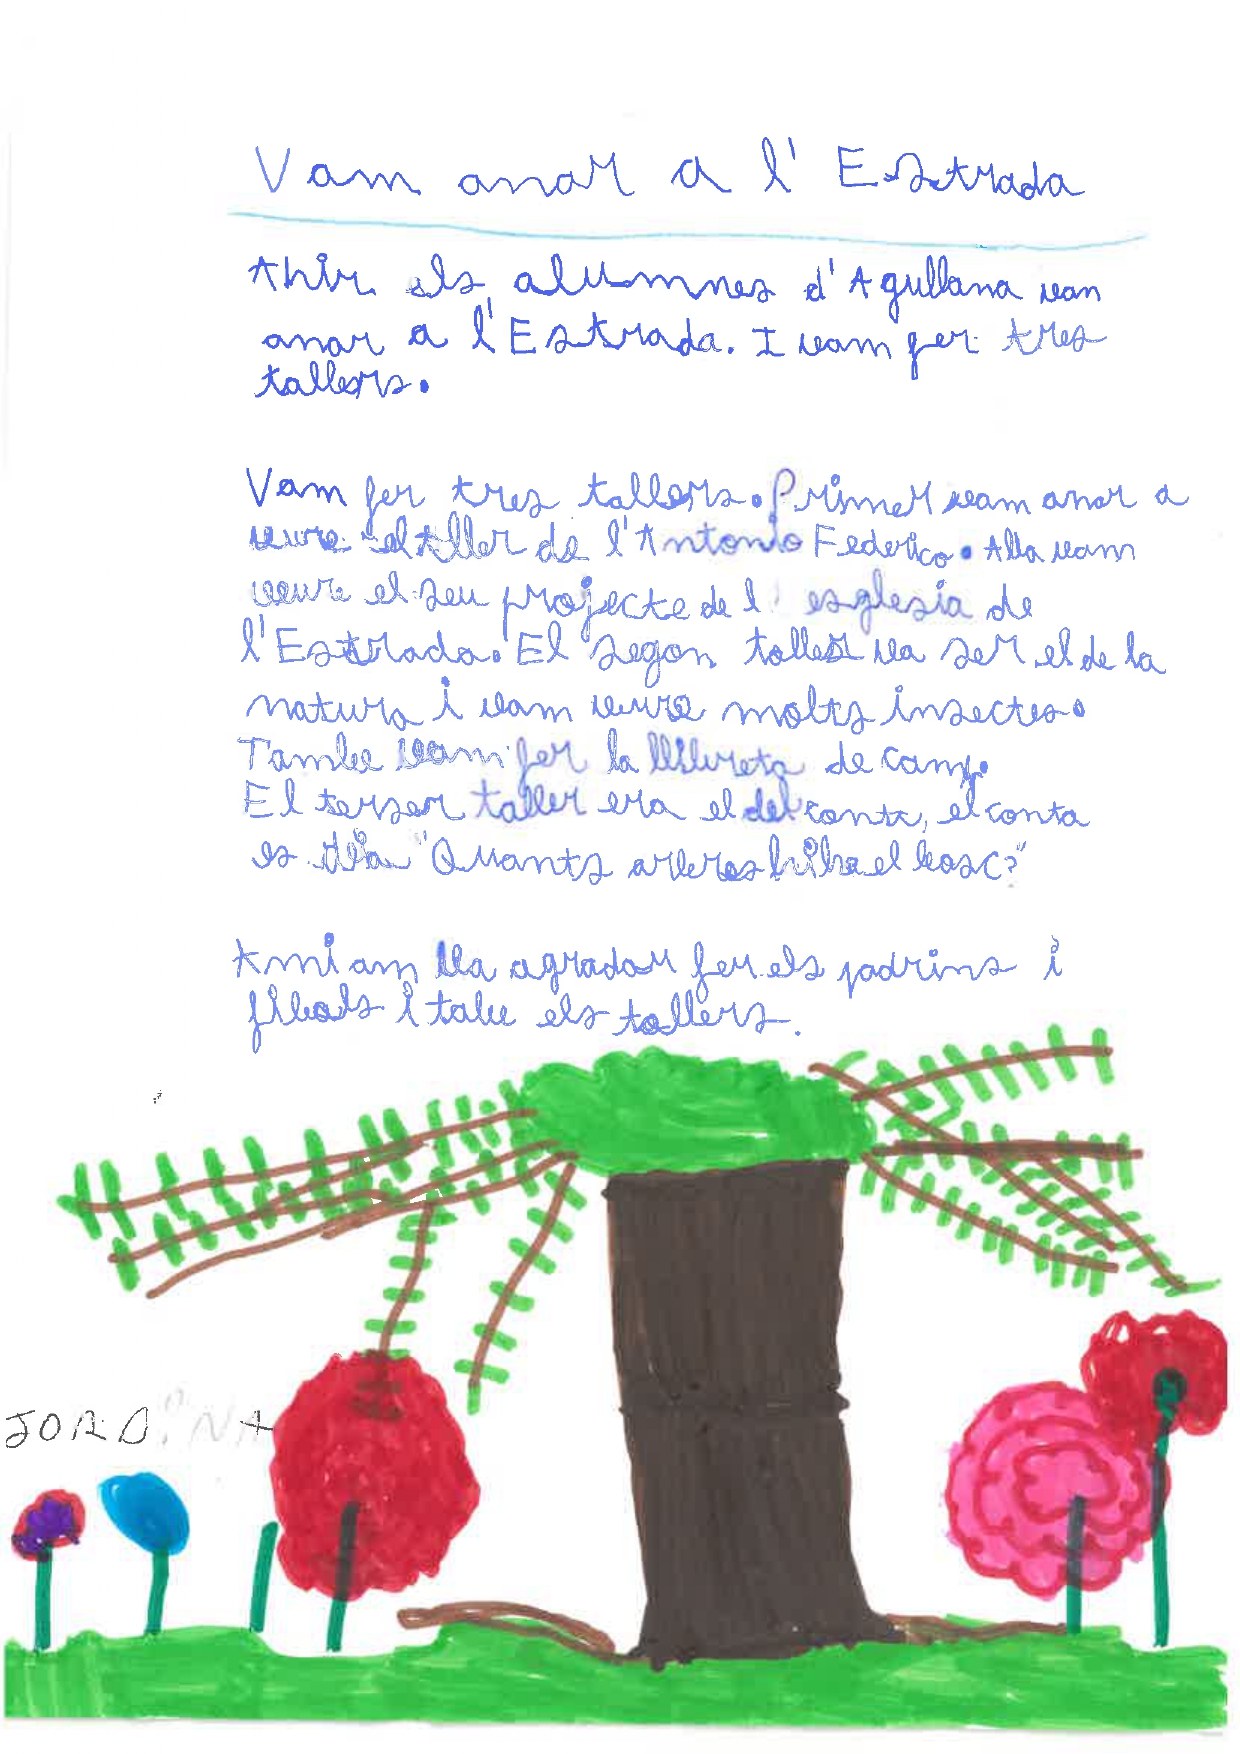 Vam anar a l'Estrada
Ahir els alumnes d'Agullana van
anar a l'Estrada. I vam fer tres
tallers.
Vam fer tres tallers. Primer vam anar a
veure el taller de l'Antonio Federico. Alla vam
veure el seu projecte de l'esglesia de
l'Estrada. El segon taller va ser el de la
natura i vam veure molts insectes.
Tambe vam fer la llibreta de camp.
El terser taller era el del conta, el conta
es deia "Quants arbres hi ha el bosc?"
A mi am va agradar fer els padrins i
fillols i tabe els tallers.
JORDINA